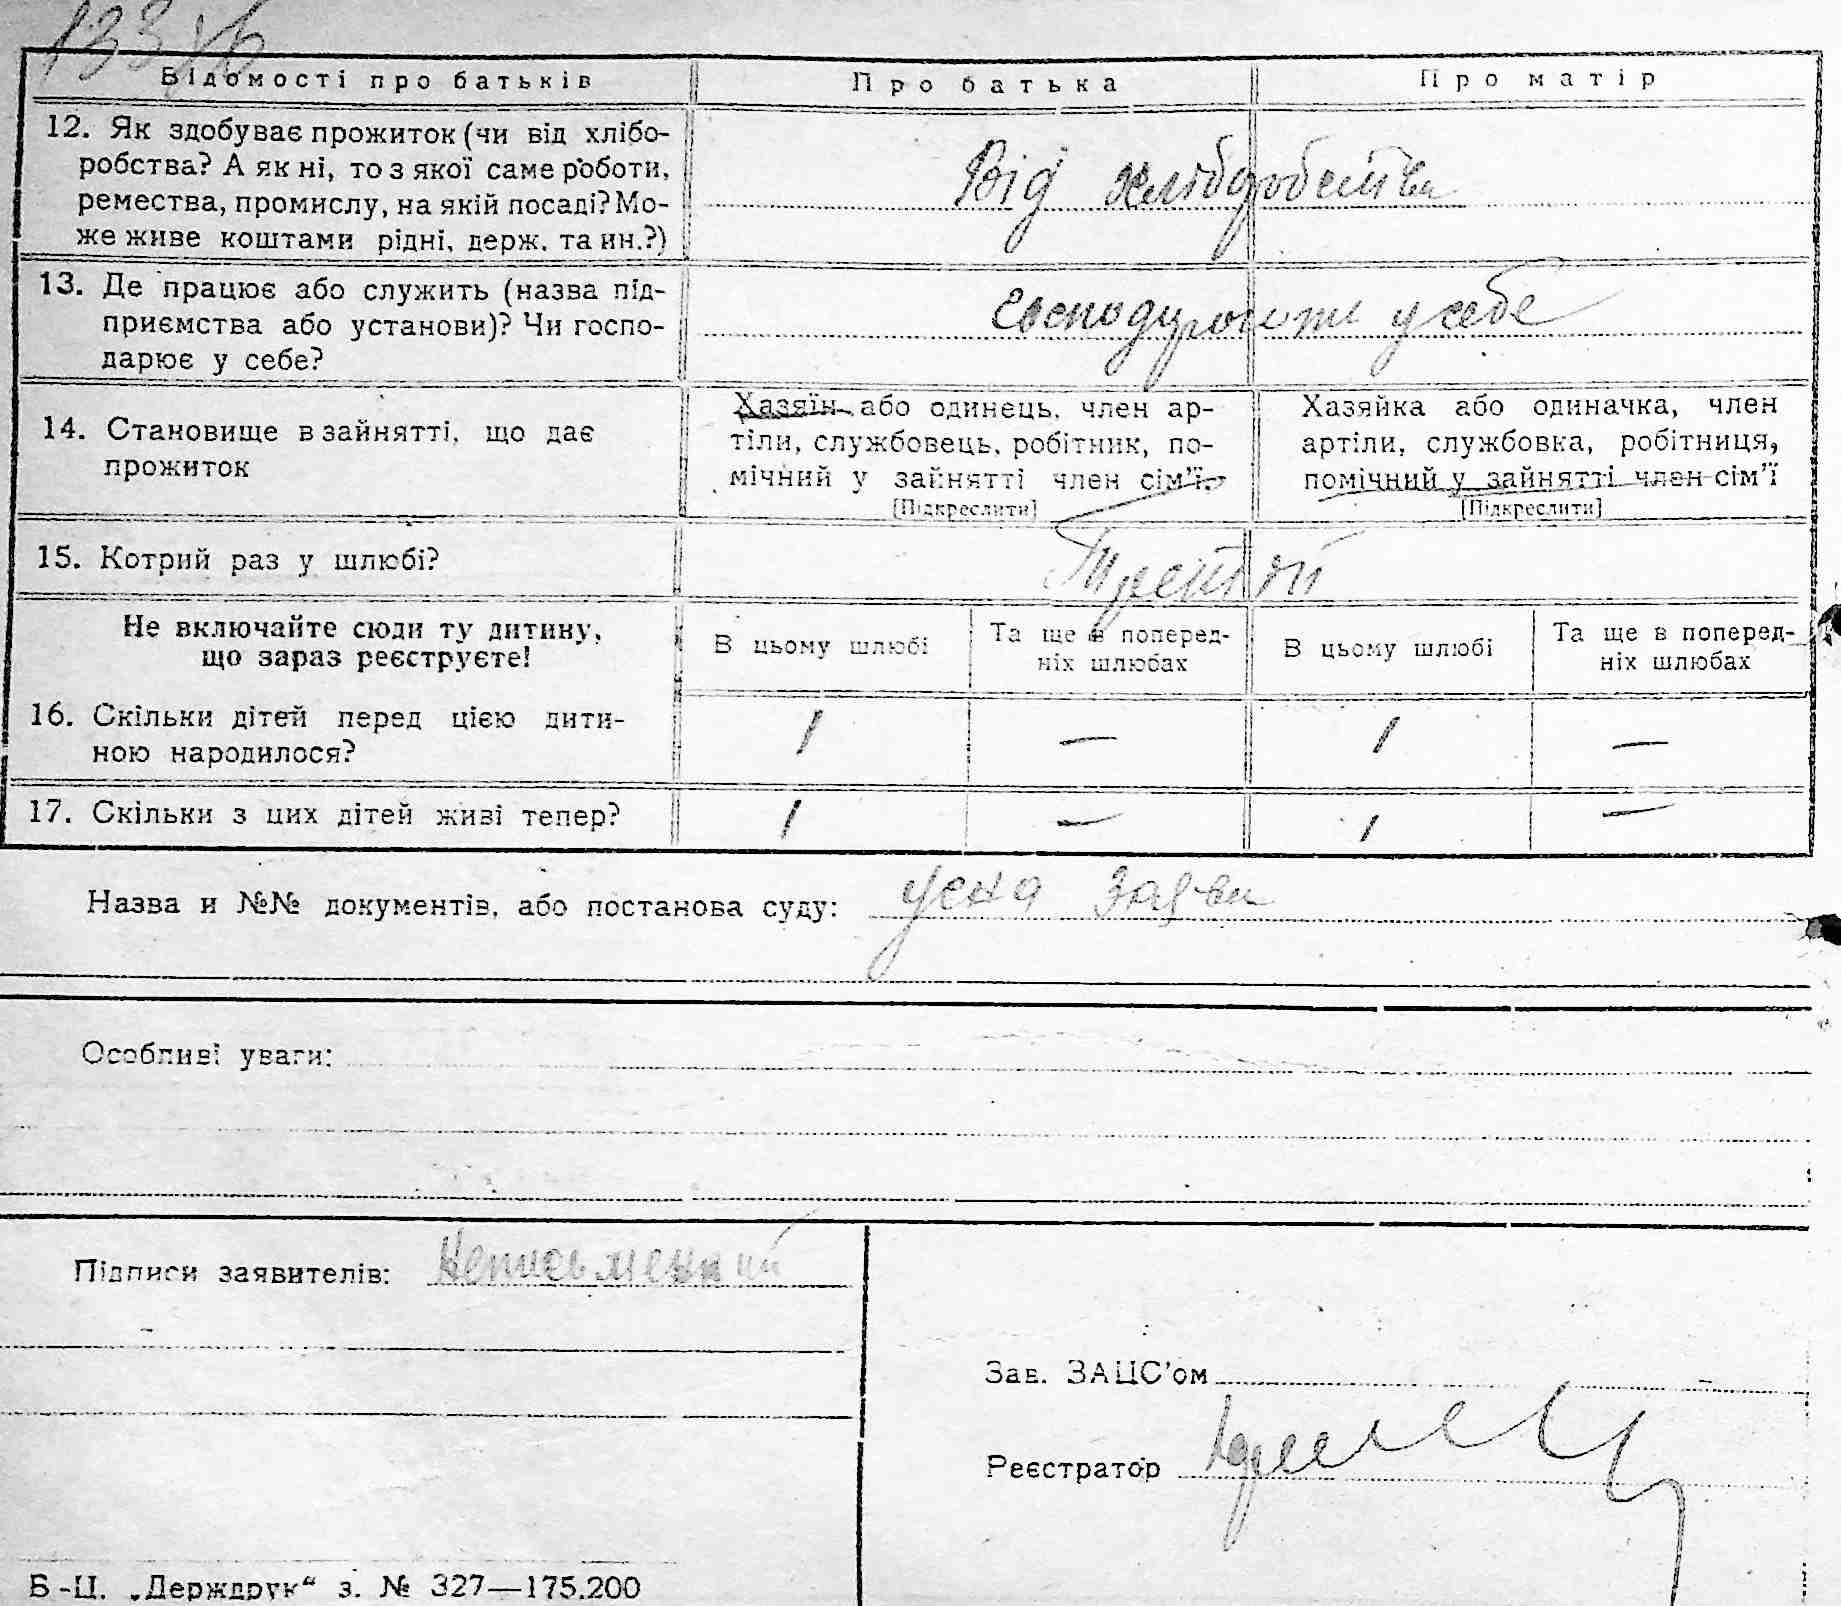 133
Відомості про батьків Про батька Про матір
12. Як здобуває прожиток (чи від хлібо-
робства? А як ні, то з якої саме роботи,
ремества, промислу, на якій посаді? Мо-
же живе коштами рідні, держ. та ин.?)
Від хліборобства
13. Де працює або служить (назва під-
приємства або установи)? Чи госпо-
дарює у себе?
у себе
14. Становище в зайнятті, що дає
прожиток
Хазяїн або одинець, член ар-
тіли, службовець, робітник, по-
мічний у зайнятті член сім'ї.
[Підкреслити]
Хазяйка або одиначка, член
артіли, службовка, робітниця,
помічний у зайнятті член сім'ї
[Підкреслити]
15. Котрий раз у шлюбі?
Не включайте сюди ту дитину,
що зараз реєструєте!
В цьому шлюбі
Та ще в поперед-
ніх шлюбах
В цьому шлюбі
Та ще в поперед-
ніх шлюбах
16. Скільки дітей перед цією дити-
ною народилося?
1 — 1 —
17. Скільки з цих дітей живі тепер? 1 — 1 —
Назва и №№ документів, або постанова суду: усна заява
Особливі уваги:
Підписи заявителів: Неписьменний
Зав. ЗАЦС'ом
Реєстратор
Б-Ц. „Держдрук“ з. № 327—175.200